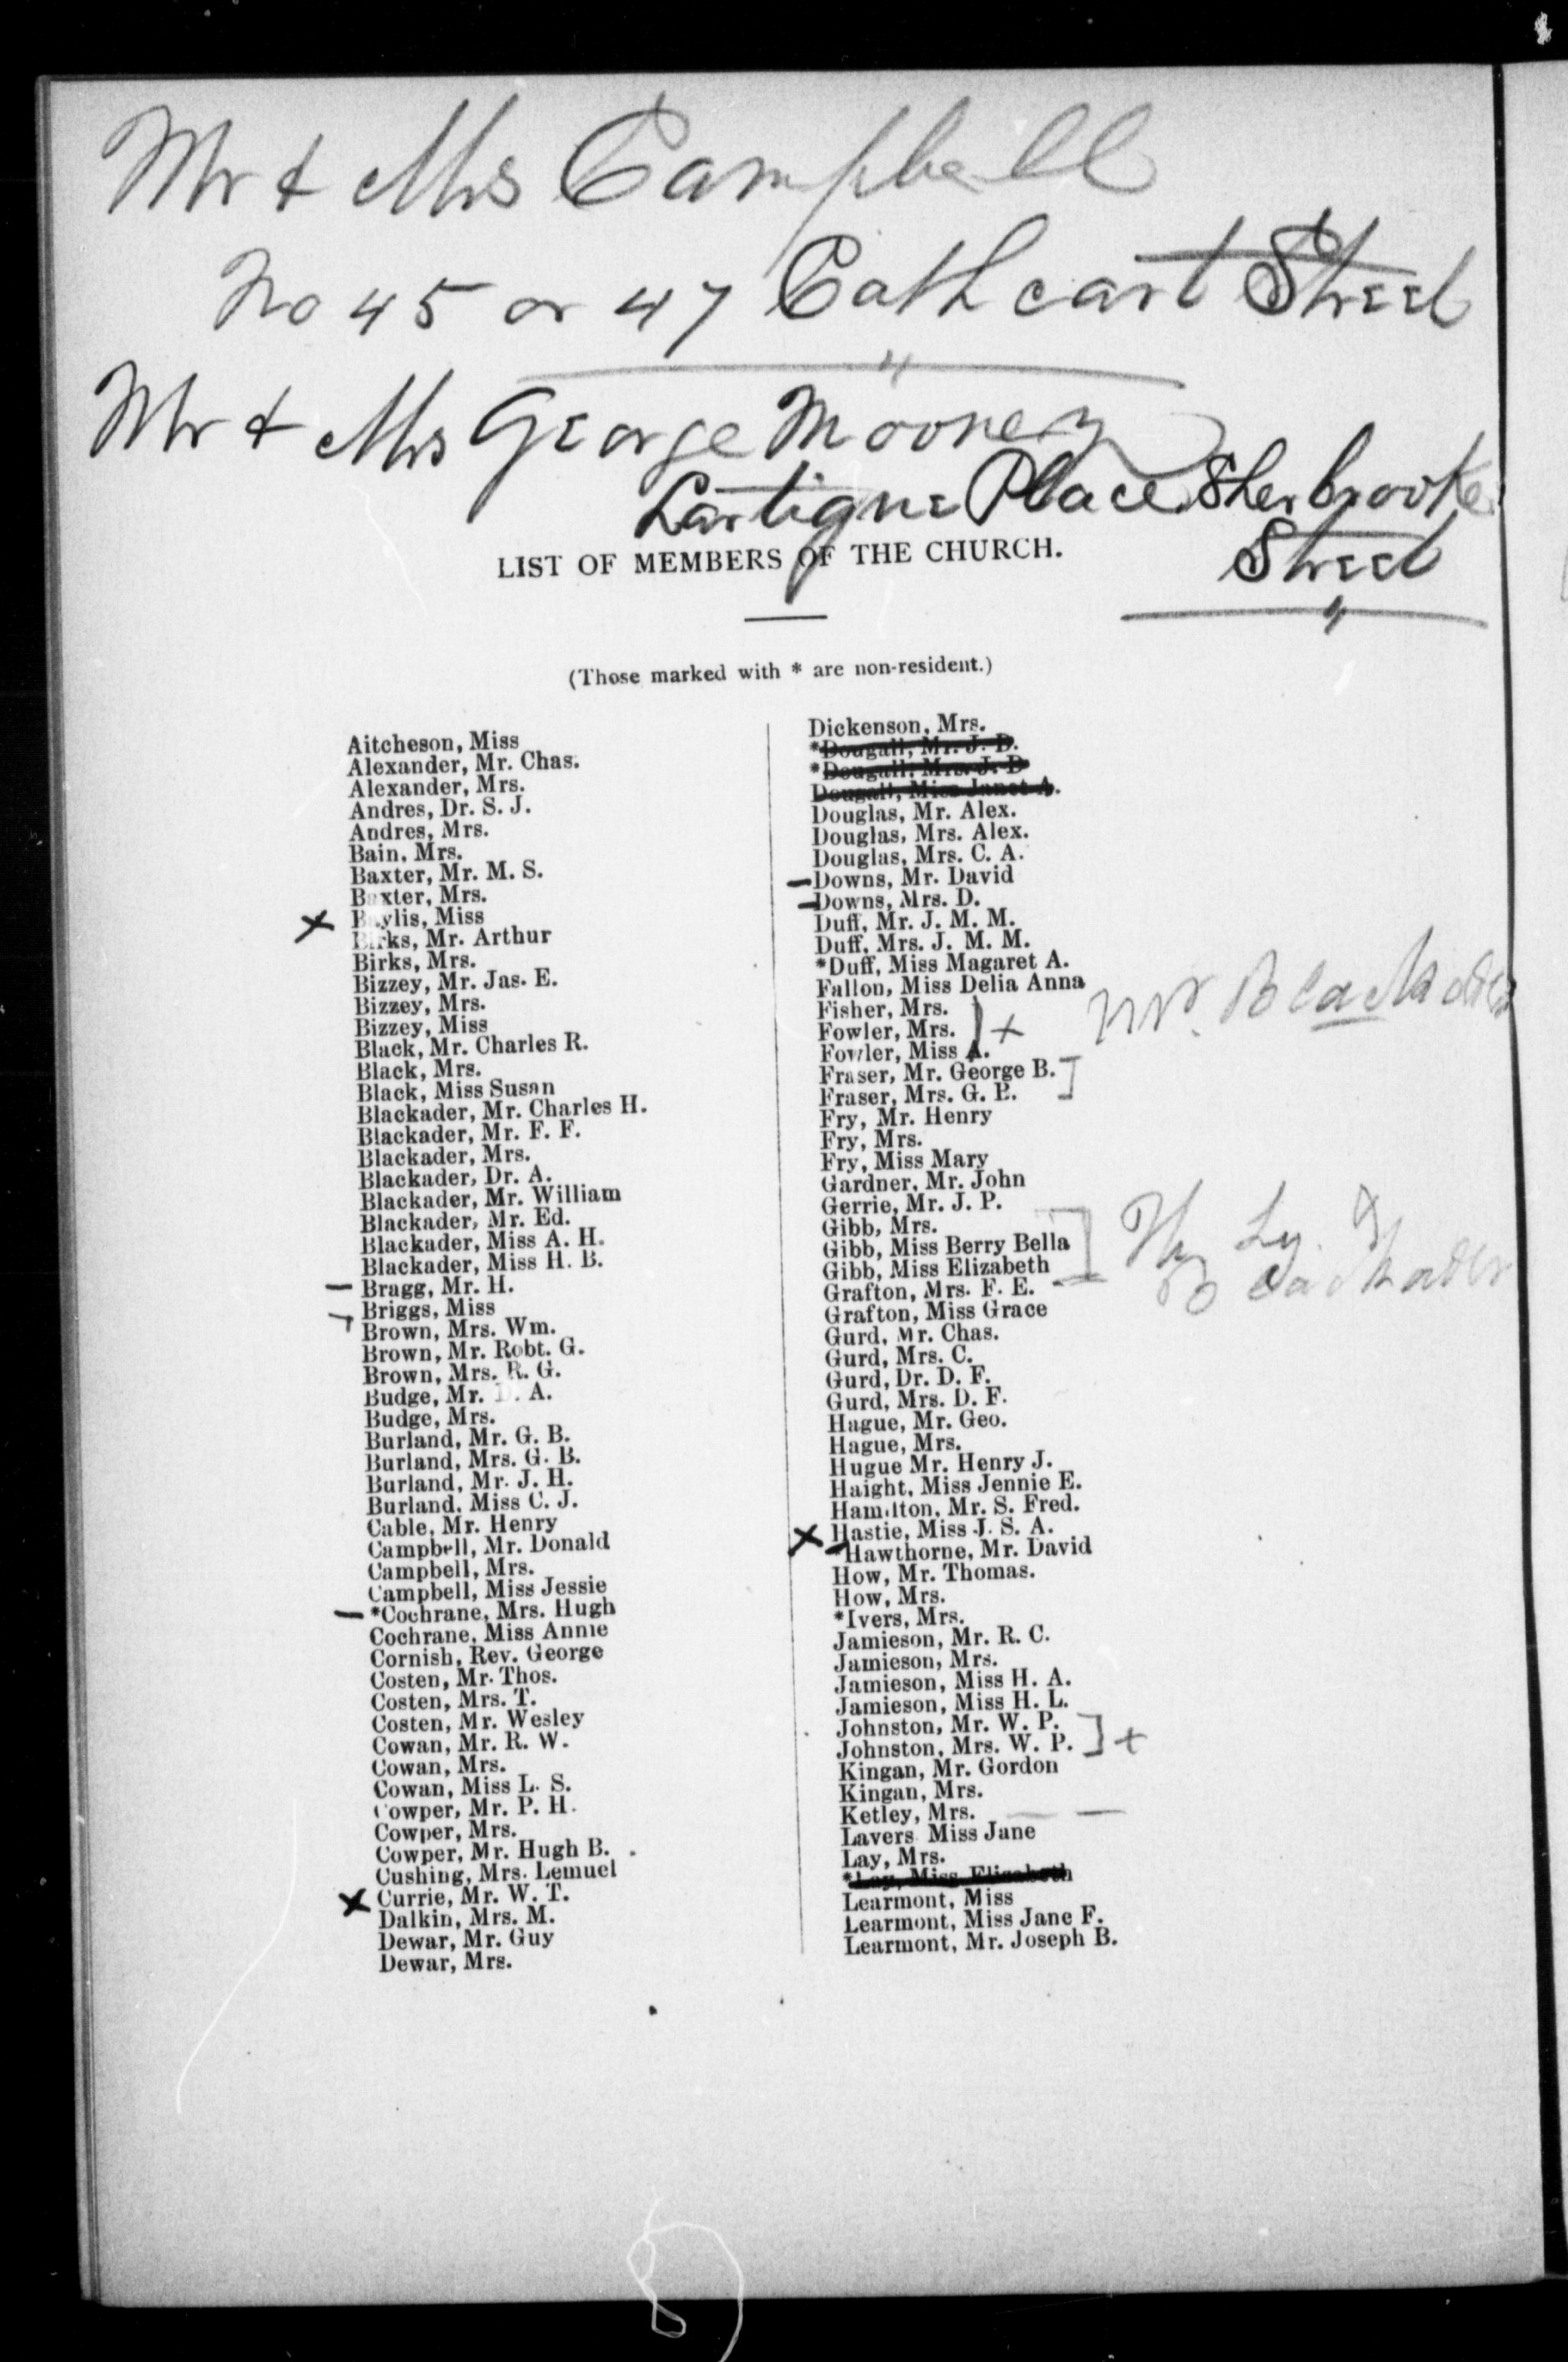 Mr & Mrs Campbell
No 45 or 47 Cathcart Street
Mr & Mrs George Mooney
Lartigne Place Sherbrooke
Street
LIST OF MEMBERS OF THE CHURCH.
(Those marked with * are non-resident.)
Aitcheson, Miss
Alexander, Mr. Chas.
Alexander, Mrs.
Andres, Dr. S. J.
Andres, Mrs.
Bain, Mrs.
Baxter, Mr. M. S.
Baxter, Mrs.
x Baylis, Miss
Birks, Mr. Arthur
Birks, Mrs.
Bizzey, Mr. Jas. E.
Bizzey, Mrs.
Bizzey, Miss
Black, Mr. Charles R.
Black, Mrs.
Black, Miss Susan
Blackader, Mr. Charles H.
Blackader, Mr. F. F.
Blackader, Mrs.
Blackader, Dr. A.
Blackader, Mr. William
Blackader, Mr. Ed.
Blackader, Miss A. H.
Blackader, Miss H. B.
— Bragg, Mr. H.
Briggs, Miss
Brown, Mrs. Wm.
Brown, Mr. Robt. G.
Brown, Mrs. R. G.
Budge, Mr. D. A.
Budge, Mrs.
Burland, Mr. G. B.
Burland, Mrs. G. B.
Burland, Mr. J. H.
Burland, Miss C. J.
Cable, Mr. Henry
Campbell, Mr. Donald
Campbell, Mrs.
Campbell, Miss Jessie
— *Cochrane, Mrs. Hugh
Cochrane, Miss Annie
Cornish, Rev. George
Costen, Mr. Thos.
Costen, Mrs. T.
Costen, Mr. Wesley
Cowan, Mr. R. W.
Cowan, Mrs.
Cowan, Miss L. S.
Cowper, Mr. P. H.
Cowper, Mrs.
Cowper, Mr. Hugh B.
Cushing, Mrs. Lemuel
x Currie, Mr. W. T.
Dalkin, Mrs. M.
Dewar, Mr. Guy
Dewar, Mrs.
Dickenson, Mrs.
*Dougall, Mr. J. D.
*Dougall, Mrs. J. D
Dougall, Miss Janet A.
Douglas, Mr. Alex.
Douglas, Mrs. Alex.
Douglas, Mrs. C. A.
— Downs, Mr. David
— Downs, Mrs. D.
Duff, Mr. J. M. M.
Duff, Mrs. J. M. M.
*Duff, Miss Magaret A.
Fallon, Miss Delia Anna
Fisher, Mrs.
Fowler, Mrs. ) + Mr. Blackader
Fowler, Miss A.
Fraser, Mr. George B. ]
Fraser, Mrs. G. B.
Fry, Mr. Henry
Fry, Mrs.
Fry, Miss Mary
Gardner, Mr. John
Gerrie, Mr. J. P.
Gibb, Mrs.
Gibb, Miss Berry Bella ]
Gibb, Miss Elizabeth Blackader
Grafton, Mrs. F. E.
Grafton, Miss Grace
Gurd, Mr. Chas.
Gurd, Mrs. C.
Gurd, Dr. D. F.
Gurd, Mrs. D. F.
Hague, Mr. Geo.
Hague, Mrs.
Hugue Mr. Henry J.
Haight, Miss Jennie E.
Hamilton, Mr. S. Fred.
x Hastie, Miss J. S. A.
*Hawthorne, Mr. David
How, Mr. Thomas.
How, Mrs.
*Ivers, Mrs.
Jamieson, Mr. R. C.
Jamieson, Mrs.
Jamieson, Miss H. A.
Jamieson, Miss H. L.
Johnston, Mr. W. P.
Johnston, Mrs. W. P. ] +
Kingan, Mr. Gordon
Kingan, Mrs.
Ketley, Mrs. — —
Lavers Miss Jane
Lay, Mrs.
*Lay, Miss Elizabeth
Learmont, Miss
Learmont, Miss Jane F.
Learmont, Mr. Joseph B.